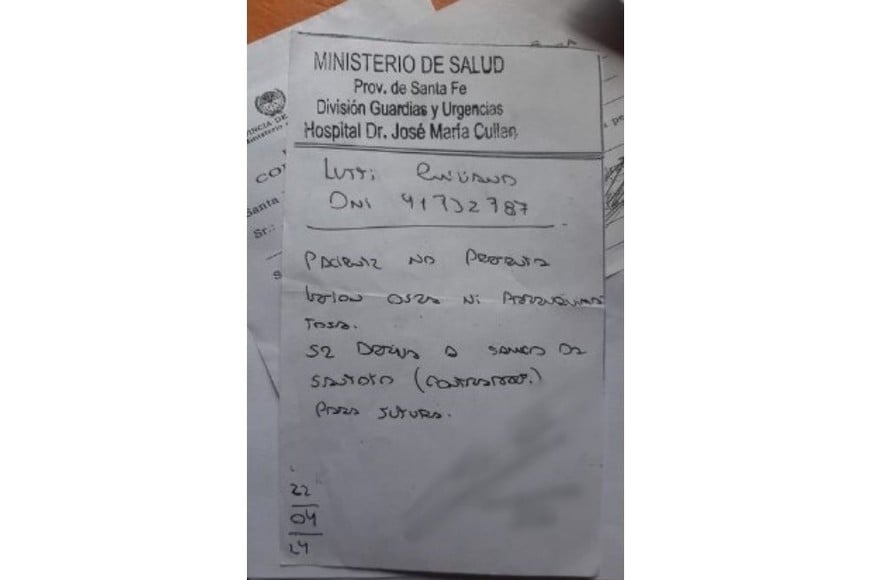 MINISTERIO DE SALUD
Prov. de Santa Fe
División Guardias y Urgencias
Hospital Dr. José María Cullen
DNI 41732787
Paciente no presenta
lesion osea ni parenquima
tosa.
se deriva a
para sutura.
22
04
24
Santa
Sr.: